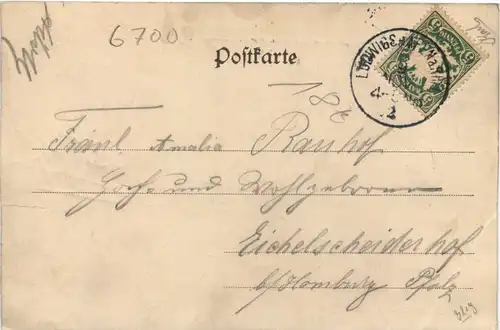 6700
Postkarte
LUDWIGSHAFEN a. RH.
18 €
Fräul. Amalia Rauhof
Hoch- und Wohlgeboren
Eichelscheiderhof
b/Homburg Pfalz